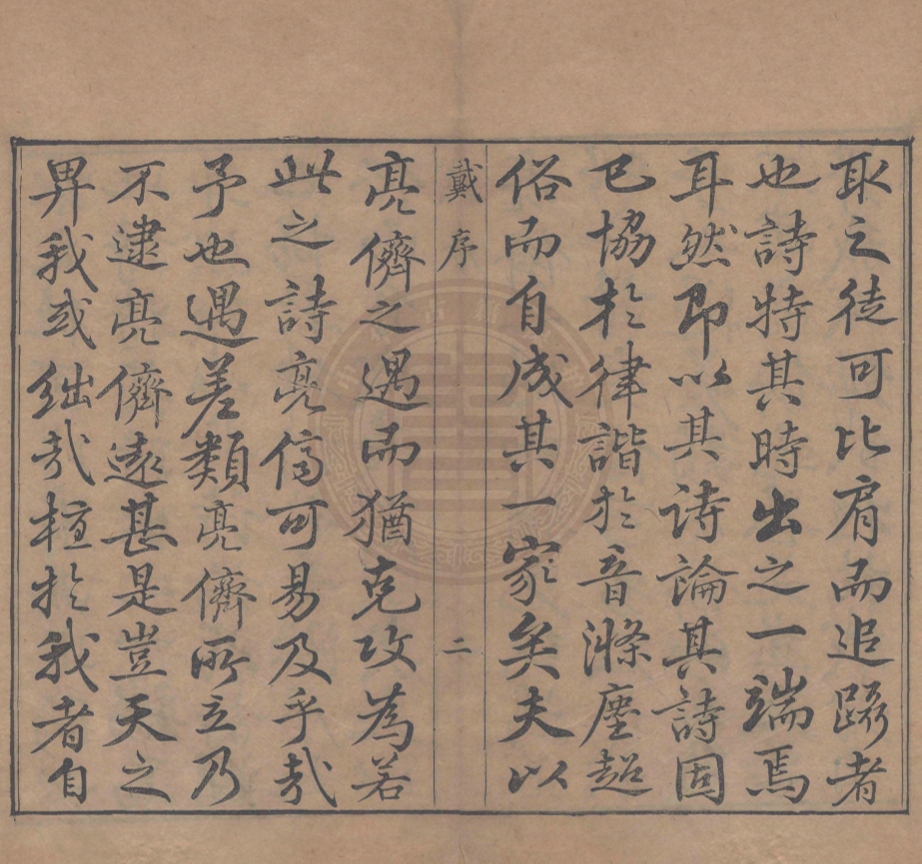 取之徒可比肩而追蹑者
也詩特其時出之一端焉
耳然即以其詩論其詩固
已協於律諧於音滌塵超
俗而自成其一家矣夫以
戴序
二
亮儕之遇而猶克攻為若
此之詩亮儕可易及乎哉
予也遇差類亮儕所立乃
不逮亮儕遠甚是豈天之
畀我或絀哉柱於我者自